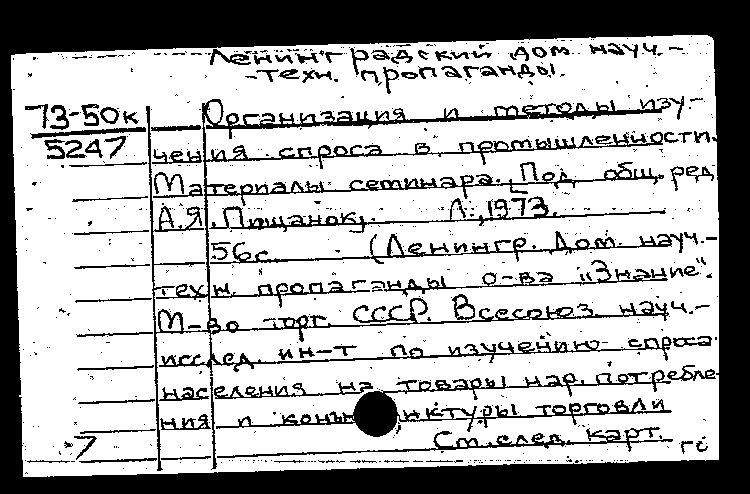 Ленинградский дом науч.-
-техн. пропаганды.
73-50к
5247
Организация и методы изу-
чения спроса в промышленности.
Материалы семинара. [Под общ. ред
А.Я.               Л., 1973.
56с. (Ленингр. Дом. науч.-
техн. пропаганды о-ва "Знание".
М-во торг. СССР. Всесоюз. науч.-
исслед. ин-т по изучению спроса
населения на товары нар. потребле-
ния и конъюнктуры торговли
7 См. след. карт.